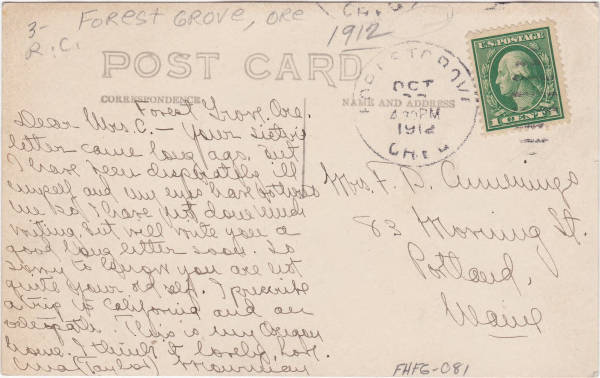 3- FOREST GROVE, ORE
R.C. 1912
POST CARD
CORRESPONDENCE
NAME AND ADDRESS
FOREST GROVE
OCT
4 30 PM
1912
OREG
U.S. POSTAGE
1 CENT 1
Forest Grove, Ore.
Dear Mrs. C. - Your
letter came long ago. But
I have been desperately ill
myself and my eyes have bothered
me so, I have not done much
writing, but will write you a
good long letter soon. So
sorry to learn you are not
quite your old self. I prescribe
a trip to California and an
osteopath. This is my Oregon
home. I think it lovely,
Mrs. F. D. Cummings
83 Morning St.
Portland,
Maine
FHFG-081